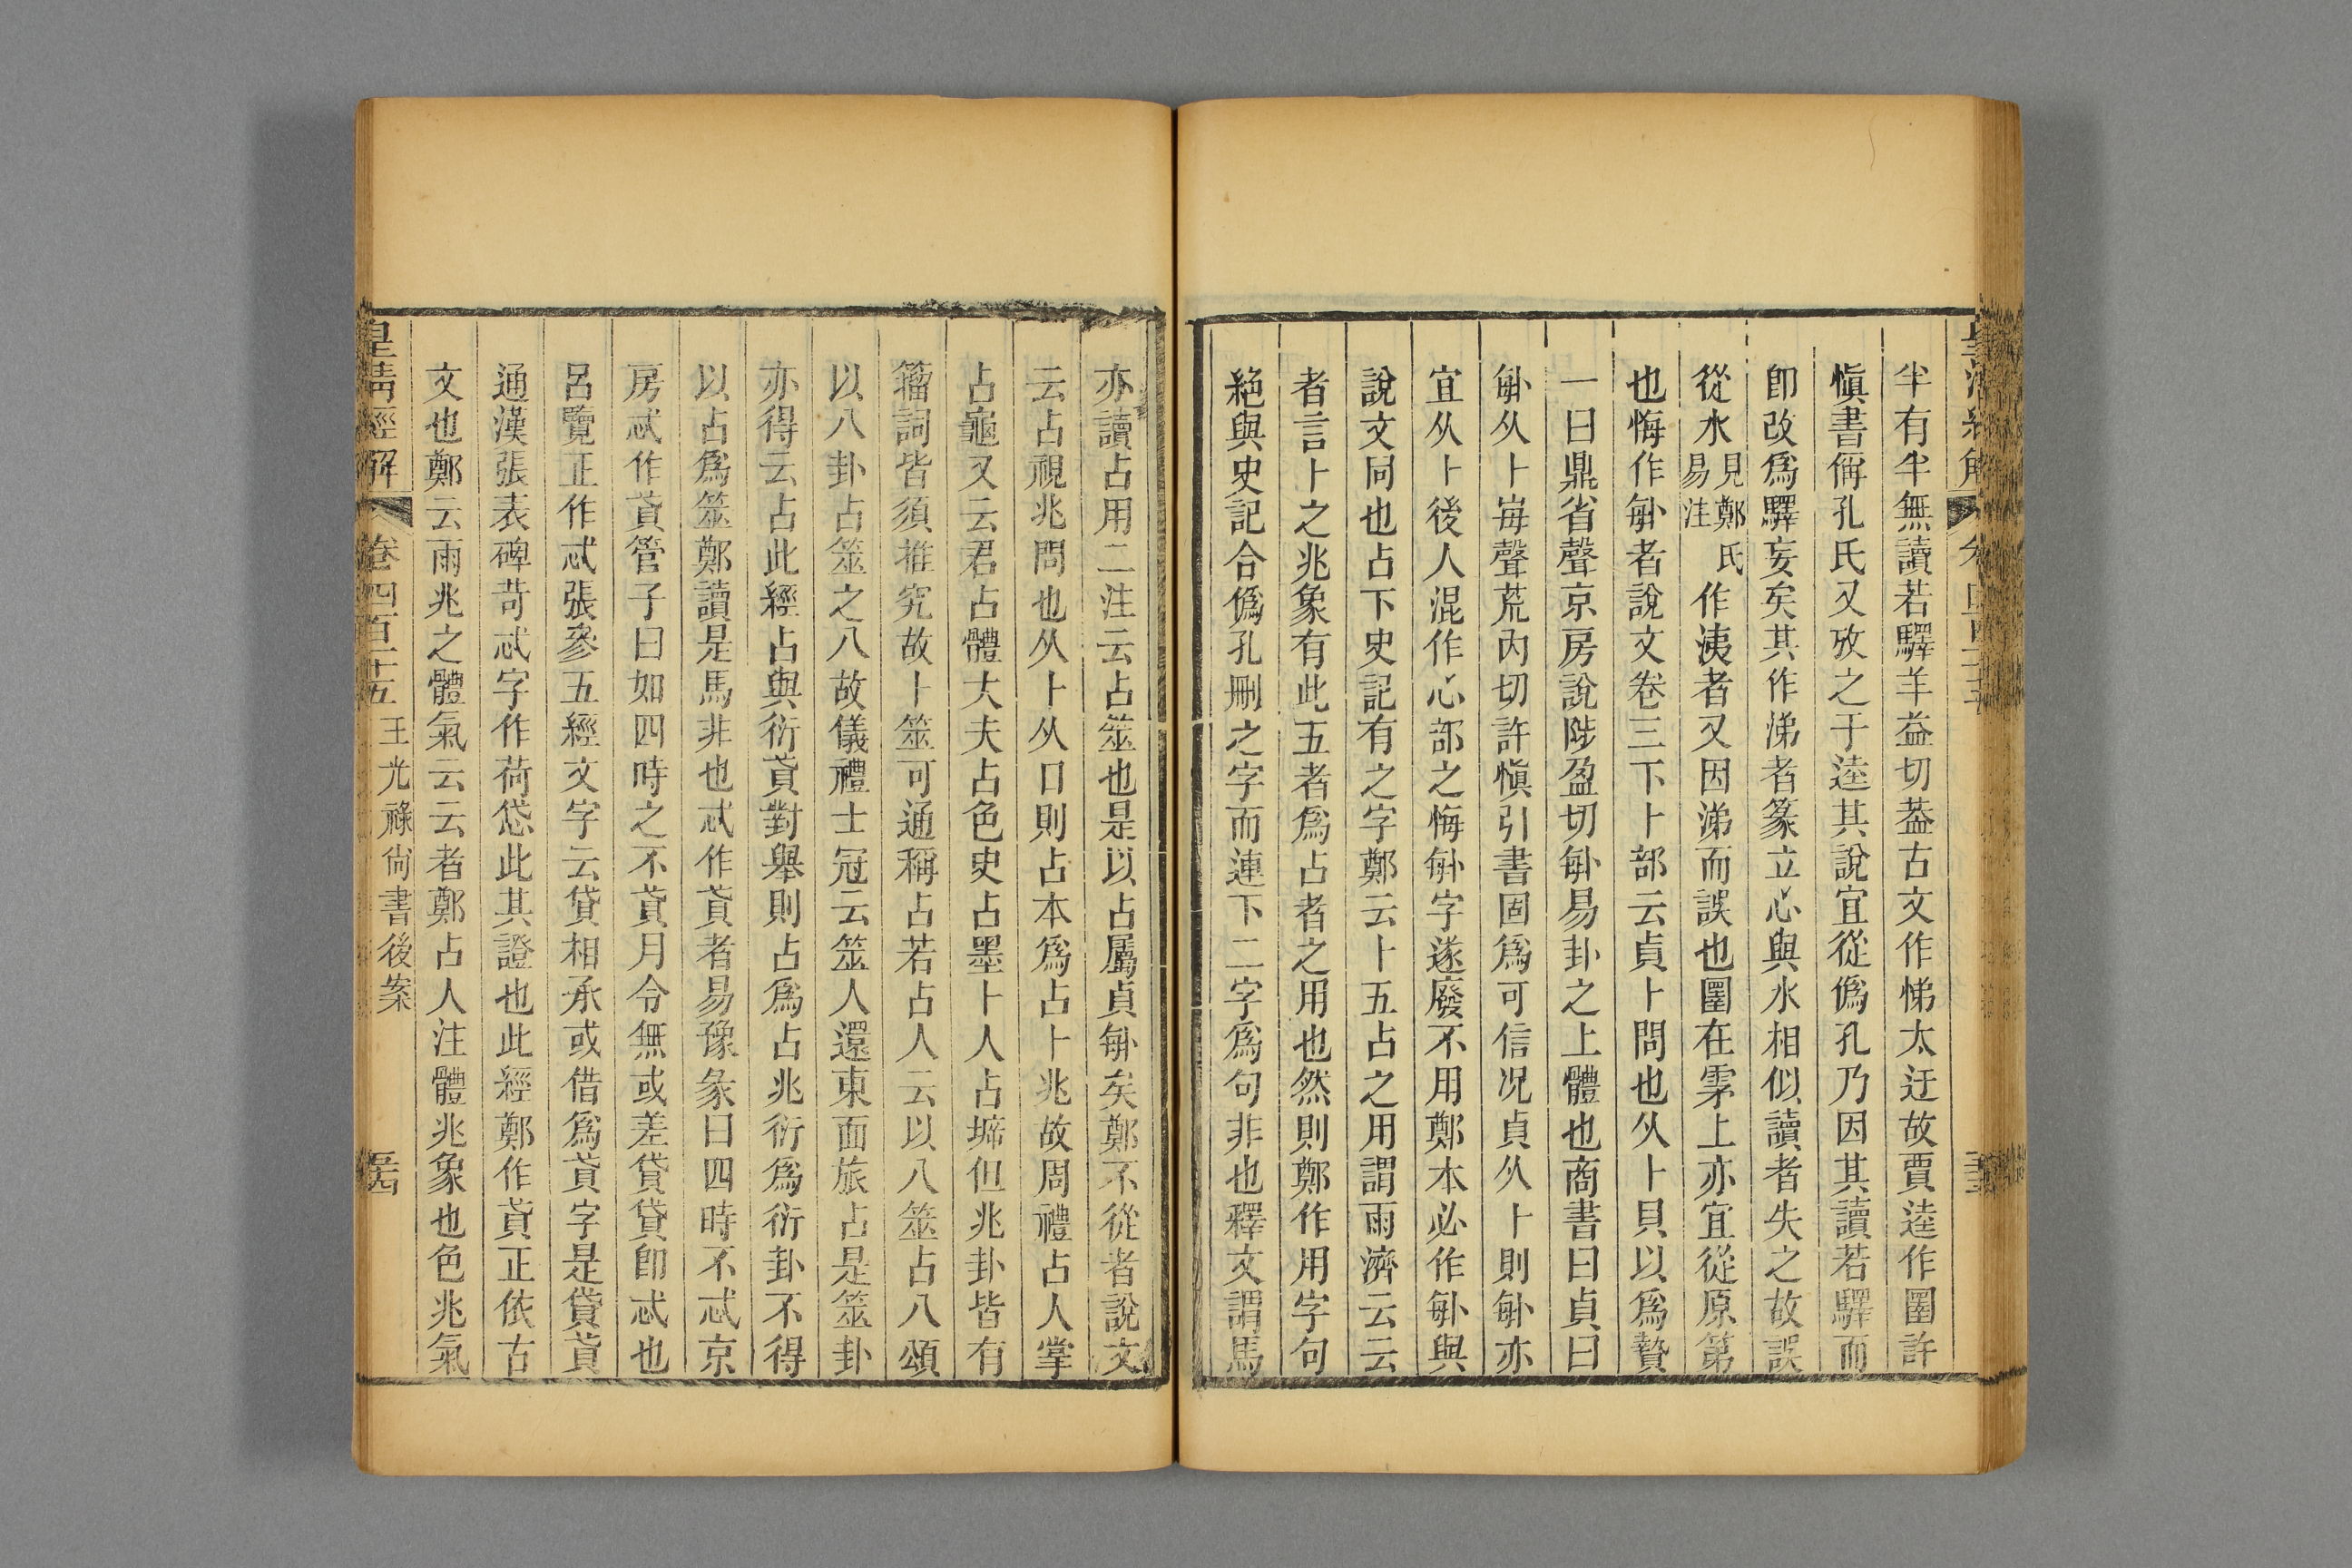 半有半無讀若驛羊益切葢古文作悌太迂故賈逵作圛許
愼書偁孔氏又攷之于逵其說宜從僞孔乃因其讀若驛而
卽改爲驛妄矣其作涕者篆立心與水相似讀者失之故誤
從水見鄭氏易注作洟者又因涕而誤也圛在雺上亦宜從原第
也悔作𠧩者說文卷三下卜部云貞卜問也从卜貝以爲贄
一曰鼎省聲京房說陟盈切𠧩易卦之上體也商書曰貞曰
𠧩从卜每聲荒內切許愼引書固爲可信况貞从卜則𠧩亦
宜从卜後人混作心部之悔𠧩字遂廢不用鄭本必作𠧩與
說文同也占下史記有之字鄭云卜五占之用謂雨濟云云
者言卜之兆象有此五者爲占者之用也然則鄭作用字句
絕與史記合僞孔刪之字而連下二字爲句非也釋文謂馬
亦讀占用二注云占筮也是以占屬貞𠧩矣鄭不從者說文
云占視兆問也从卜从口則占本爲占卜兆故周禮占人掌
占龜又云君占體大夫占色史占墨卜人占墆但兆卦皆有
籀詞皆須推究故卜筮可通稱占若占人云以八筮占八頌
以八卦占筮之八故儀禮士冠云筮人還東面旅占是筮卦
亦得云占此經占與衍貣對舉則占爲占兆衍爲衍卦不得
以占爲筮鄭讀是馬非也忒作貣者易豫彖曰四時不忒京
房忒作貣管子曰如四時之不貣月令無或差貸貸卽忒也
呂覽正作忒張參五經文字云貸相承或借爲貣字是貸貣
通漢張表碑苛忒字作荷㤫此其證也此經鄭作貣正依古
文也鄭云雨兆之體氣云云者鄭占人注體兆象也色兆氣
皇清經解
卷四百二十五
王光祿尙書後案